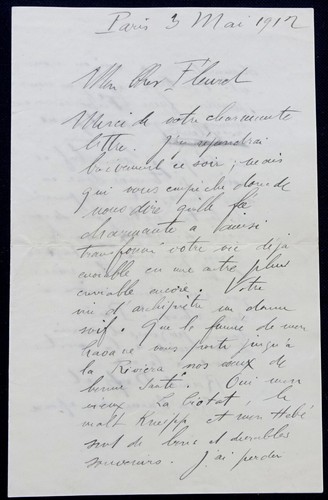 Paris 3 Mai 1912
Mon cher Fleuret
Merci de votre charmante
lettre. J'y répondrai
brièvement ce soir ; mais
qui vous empêche donc de
nous dire quelle fée
charmante a ainsi
transformé votre vie déjà
enviable en une autre plus
enviable encore. Votre
vin d'archiprêtre me donne
soif. Que la fumée de mon
havane vous porte jusqu'à
la Riviera nos vœux de
bonne santé. Oui mon
vieux La Ciotat, le
malt Kneipp et mon Hébé
sont de bons et durables
souvenirs. J'ai perdu